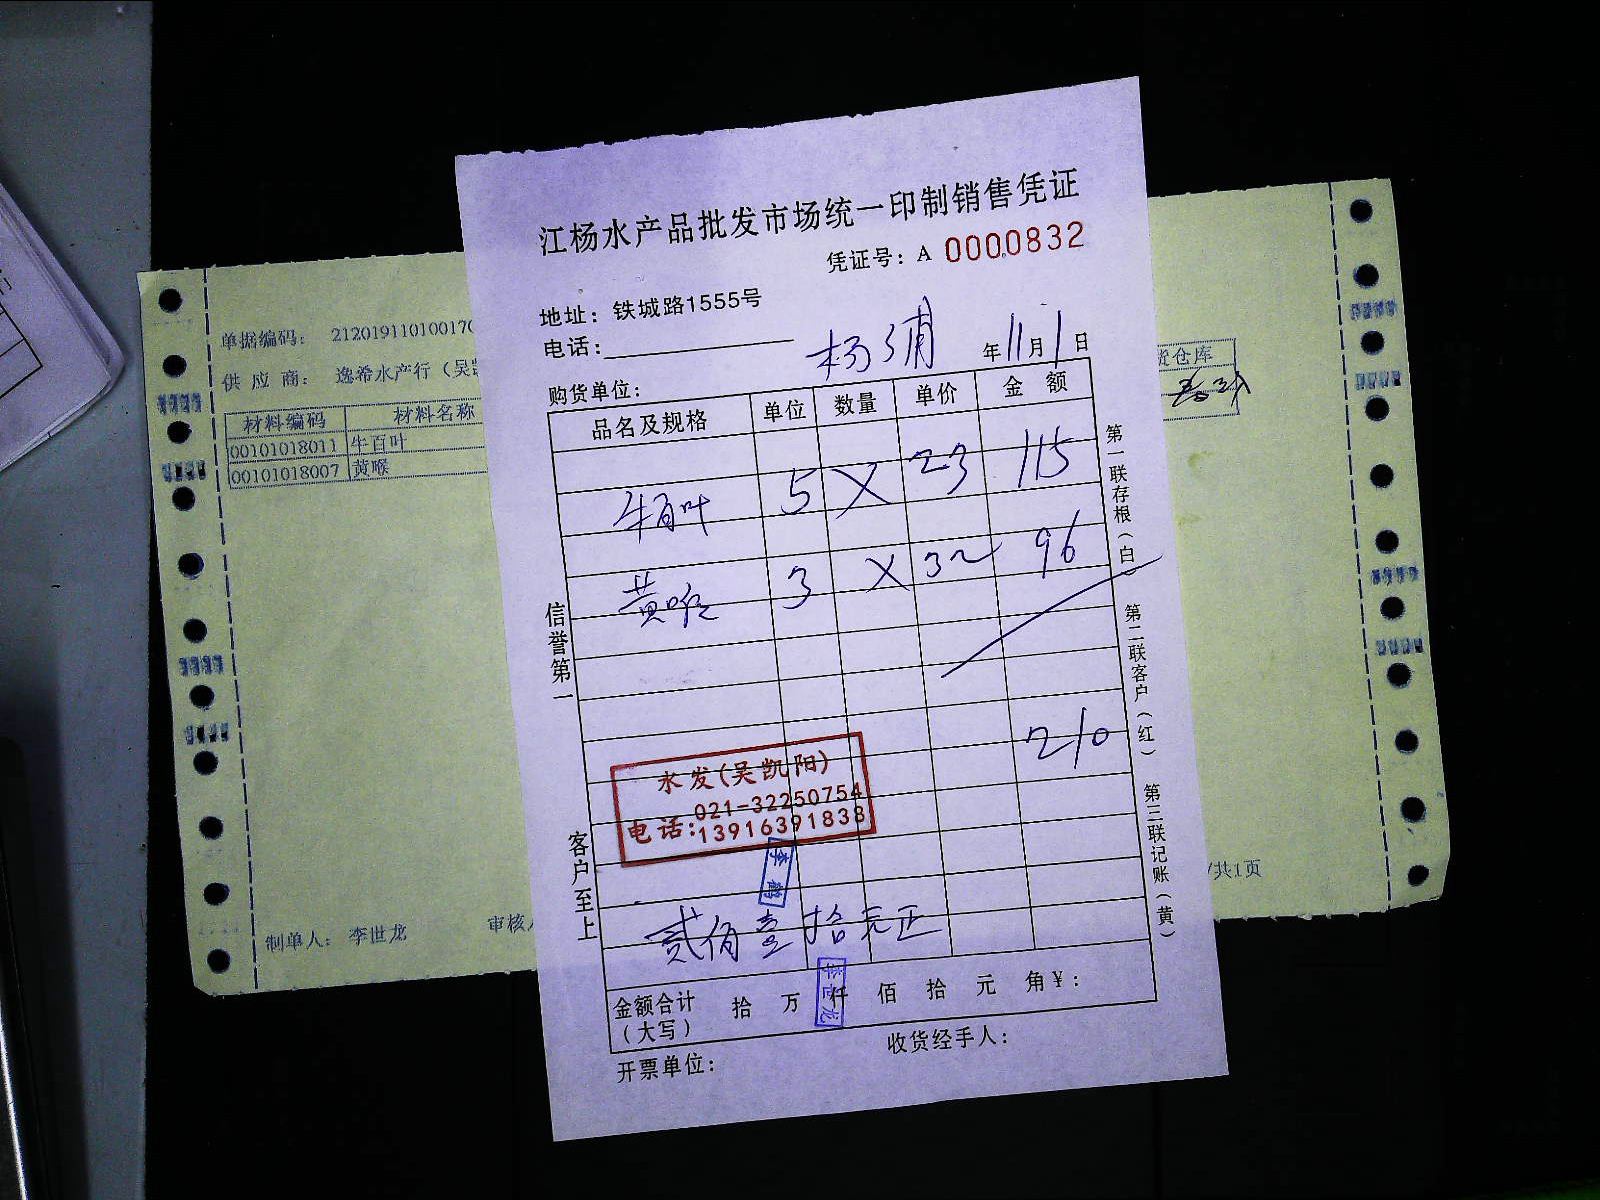 江杨水产品批发市场统一印制销售凭证
凭证号：A 0000832
地址：铁城路1555号
电话：
购货单位： 杨浦 年11月1日
品名及规格 单位 数量 单价 金 额
牛百叶 5 X 23 115
黄喉 3 X 32 96
210
水发(吴凯阳)
电话: 021-32250754
13916391838
李
贰佰壹拾元正
李世龙
金额合计（大写） 拾 万 仟 佰 拾 元 角 ¥：
开票单位： 收货经手人：
信誉第一
客户至上
第一联存根（白）
第二联客户（红）
第三联记账（黄）
单据编码： 212019110100170
供 应 商： 逸希水产行（吴凯
材料编码 材料名称
00101018011 牛百叶
00101018007 黄喉
货仓库
制单人： 李世龙 审核人
/共1页